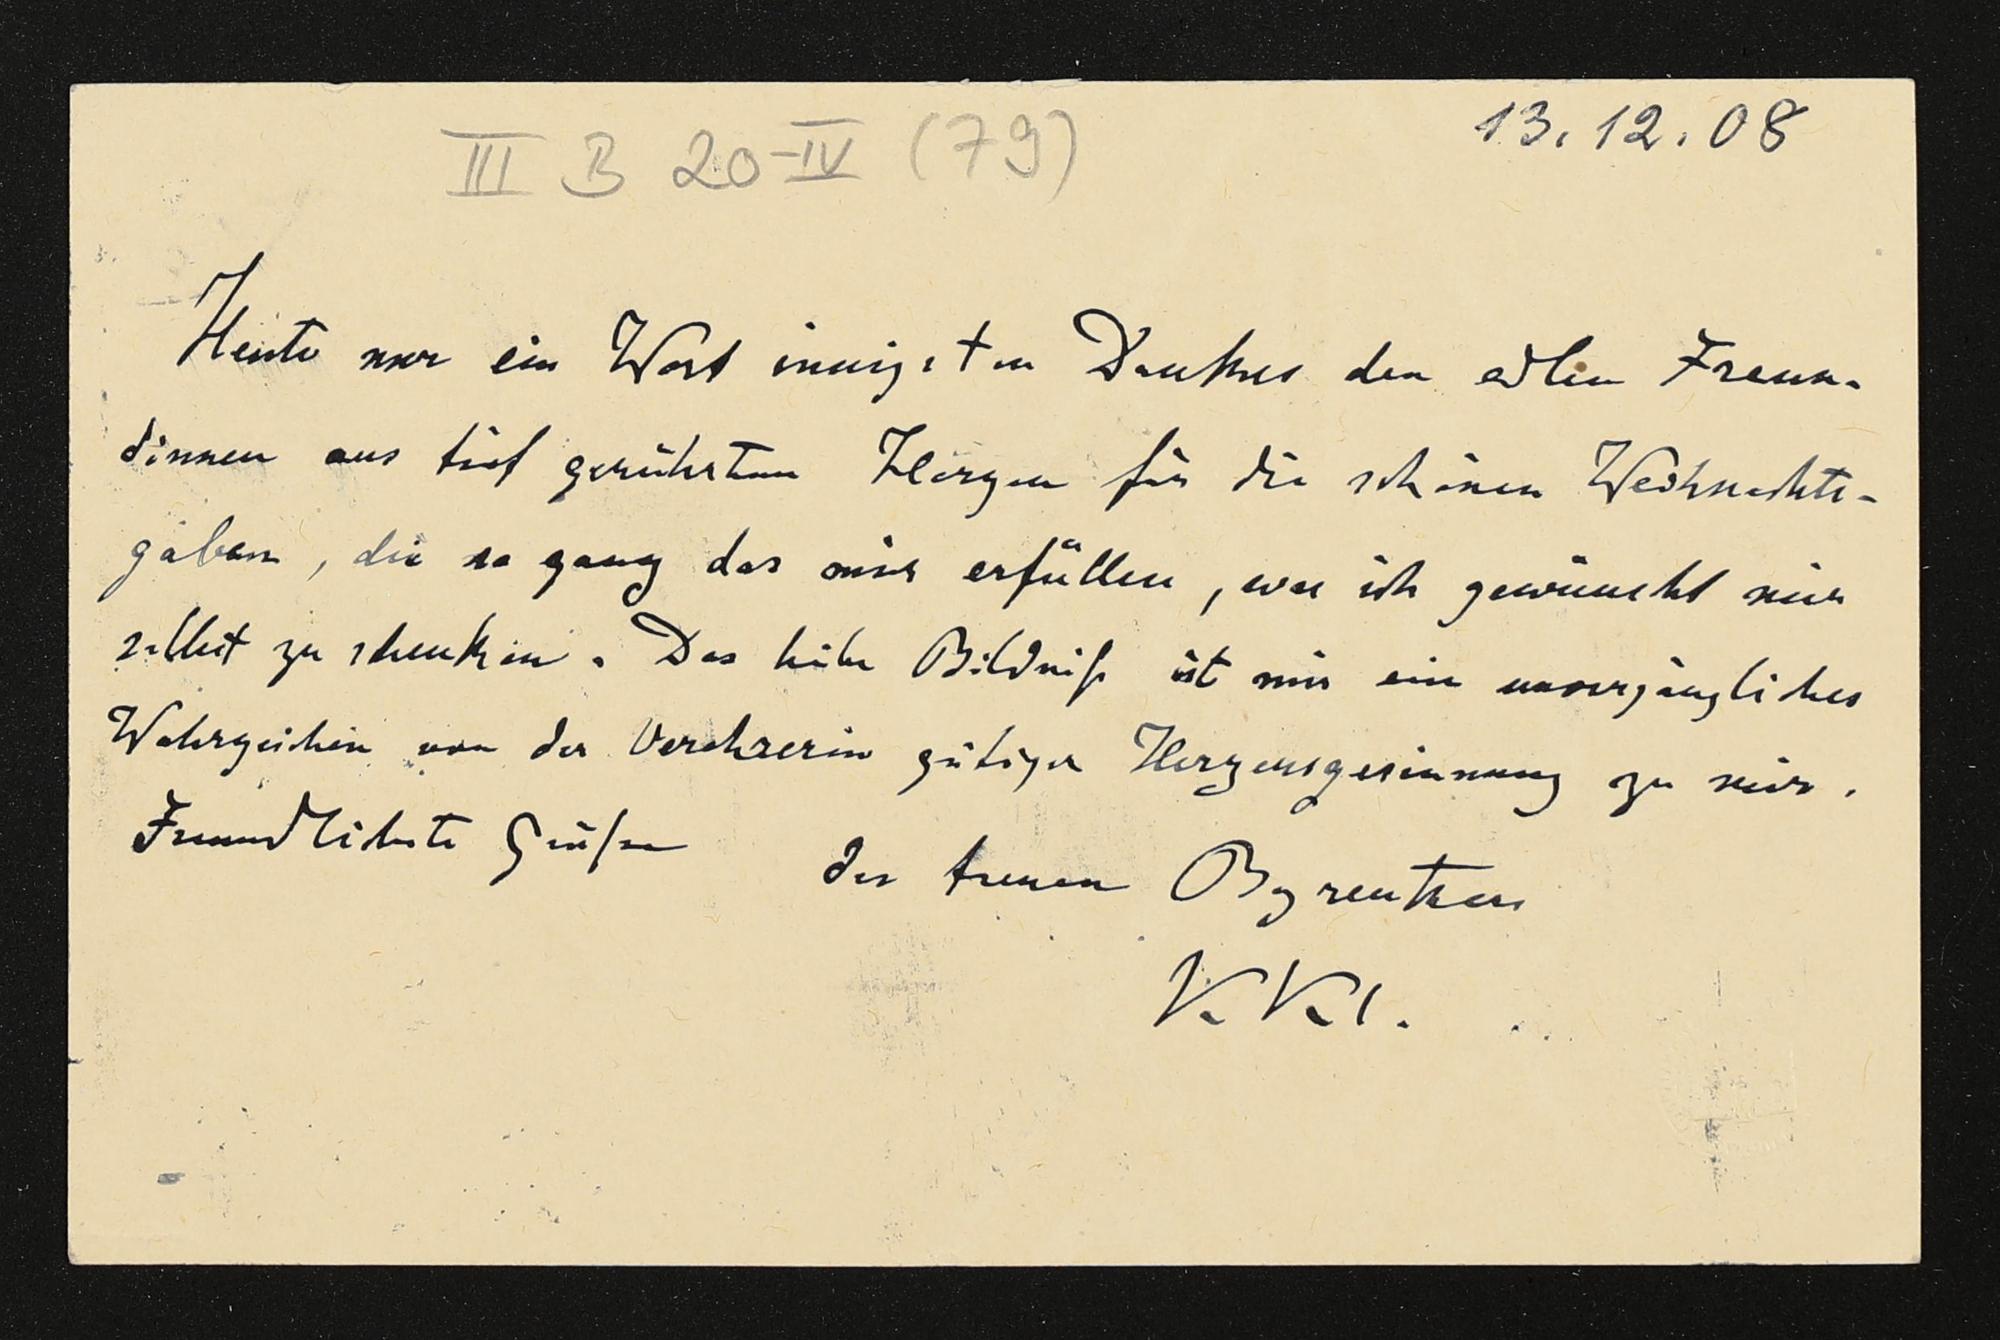 III B 20-IV (79)
13.12.08
Heute nur ein Wort innigsten Dankes den edlen Freun-
dinnen aus tief gerührtem Herzen für die schönen Weihnachts-
gaben, die so ganz das mir erfüllen, was ich gewünscht mir
selbst zu schenken. Das liebe Bildniß ist mir ein unvergängliches
Wahrzeichen von der Verehrerin gütiger Herzensgesinnung zu mir.
Freundlichste Grüße
des treuen Byreuthers
KKl.